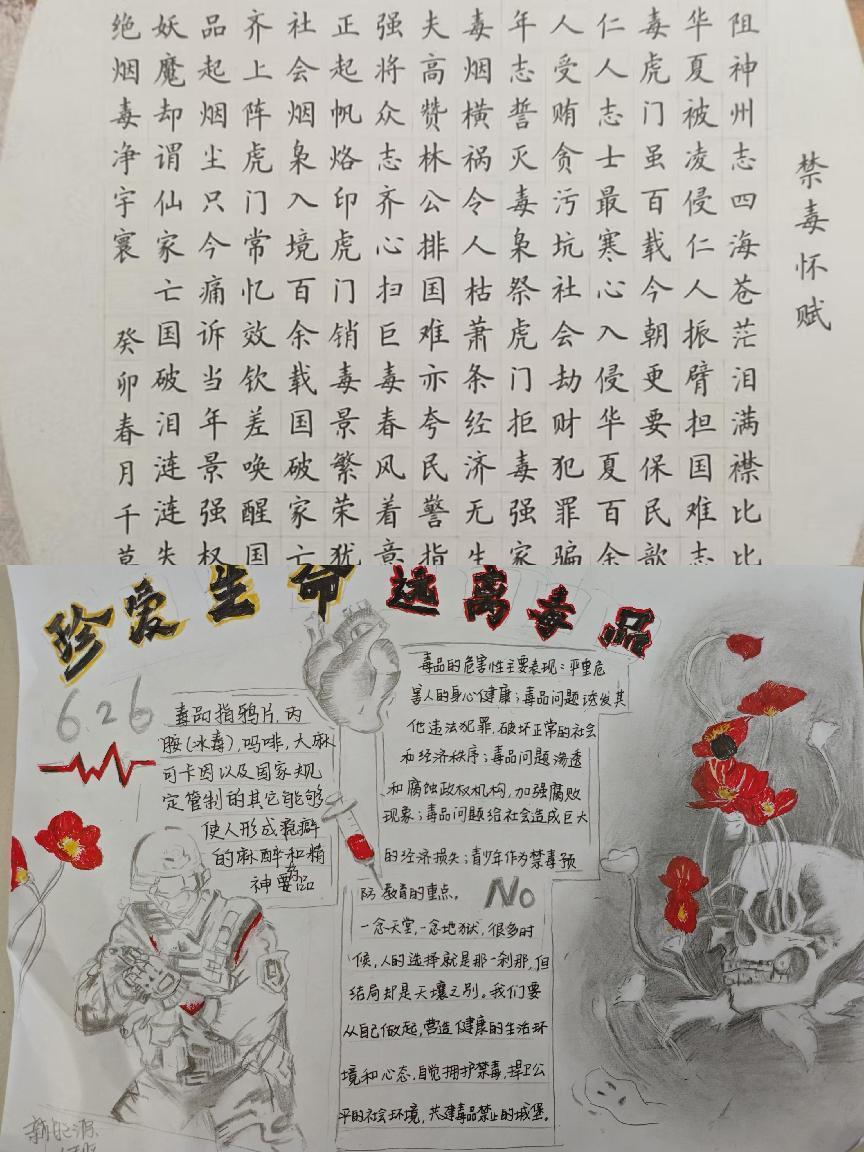 禁毒怀赋
阻神州志四海苍茫泪满襟比比
华夏被凌侵仁人振臂担国难志
毒虎门虽百载今朝更要保民歌
仁人志士最寒心入侵华夏百余
人受贿贪污坑社会劫财犯罪骗
年志誓灭毒枭祭虎门拒毒强家
毒烟横祸令人枯萧条经济无生
夫高赞林公排国难亦夸民警指
强将众志齐心扫巨毒春风着意
正起帆烙印虎门销毒景繁荣犹
社会烟枭入境百余载国破家亡
齐上阵虎门常忆效钦差唤醒国
品起烟尘只今痛诉当年景强权
妖魔却谓仙家亡国破泪涟涟失
绝烟毒净宇寰 癸卯春月千
珍爱生命远离毒品
6.26
毒品指鸦片,丙
胺(冰毒),吗啡,大麻
可卡因以及国家规
定管制的其它能够
使人形成瘾癖
的麻醉和精
神药品
毒品的危害性主要表现:严重危
害人的身心健康;毒品问题诱发其
他违法犯罪,破坏正常的社会
和经济秩序;毒品问题渗透
和腐蚀政权机构,加强腐败
现象;毒品问题给社会造成巨大
的经济损失;青少年作为禁毒预
防教育的重点。
No
一念天堂,一念地狱,很多时
候,人的选择就是那一刹那,但
结局却是天壤之别。我们要
从自己做起,营造健康的生活环
境和心态,自觉拥护禁毒,捍卫公
平的社会环境,共建毒品禁止的城堡。